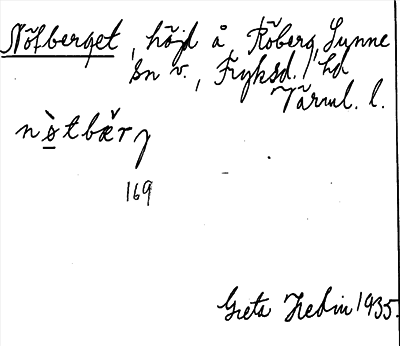 Nötberget, höjd å Röberg, Sunne
sn v., Fryksd. hd
Värml. l.
nø̀tbærj
169
Greta Hedin 1935.